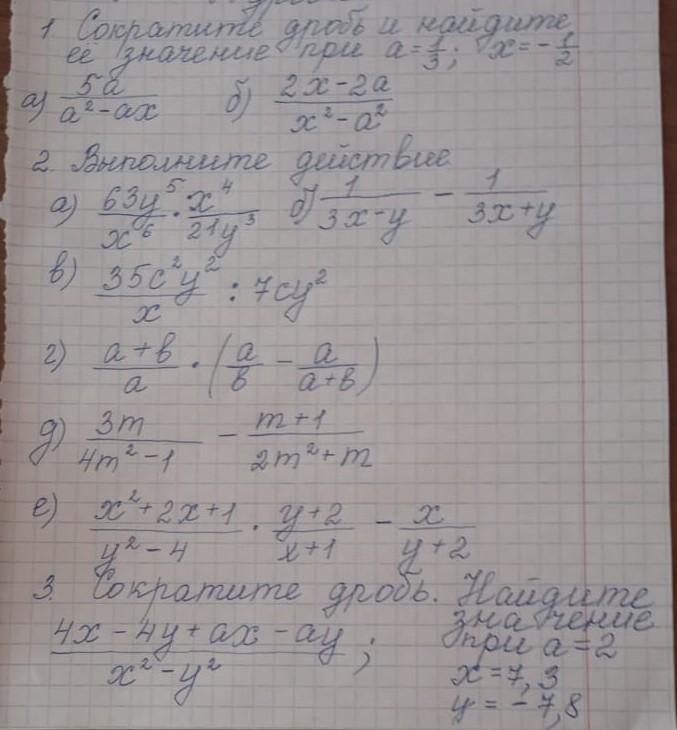 1. Сократите дробь и найдите
её значение при a = 1/3; x = -1/2
а) 5a/(a² - ax) б) (2x - 2a)/(x² - a²)
2. Выполните действие
а) 63y⁵/x⁶ · x⁴/21y³ б) 1/(3x - y) - 1/(3x + y)
в) 35c²y²/x : 7cy²
г) (a + b)/a · (a/b - a/(a + b))
д) 3m/(4m² - 1) - (m + 1)/(2m² + m)
е) (x² + 2x + 1)/(y² - 4) · (y + 2)/(x + 1) - x/(y + 2)
3. Сократите дробь. Найдите
значение
(4x - 4y + ax - ay)/(x² - y²); при a = 2
x = 7,3
y = -7,8